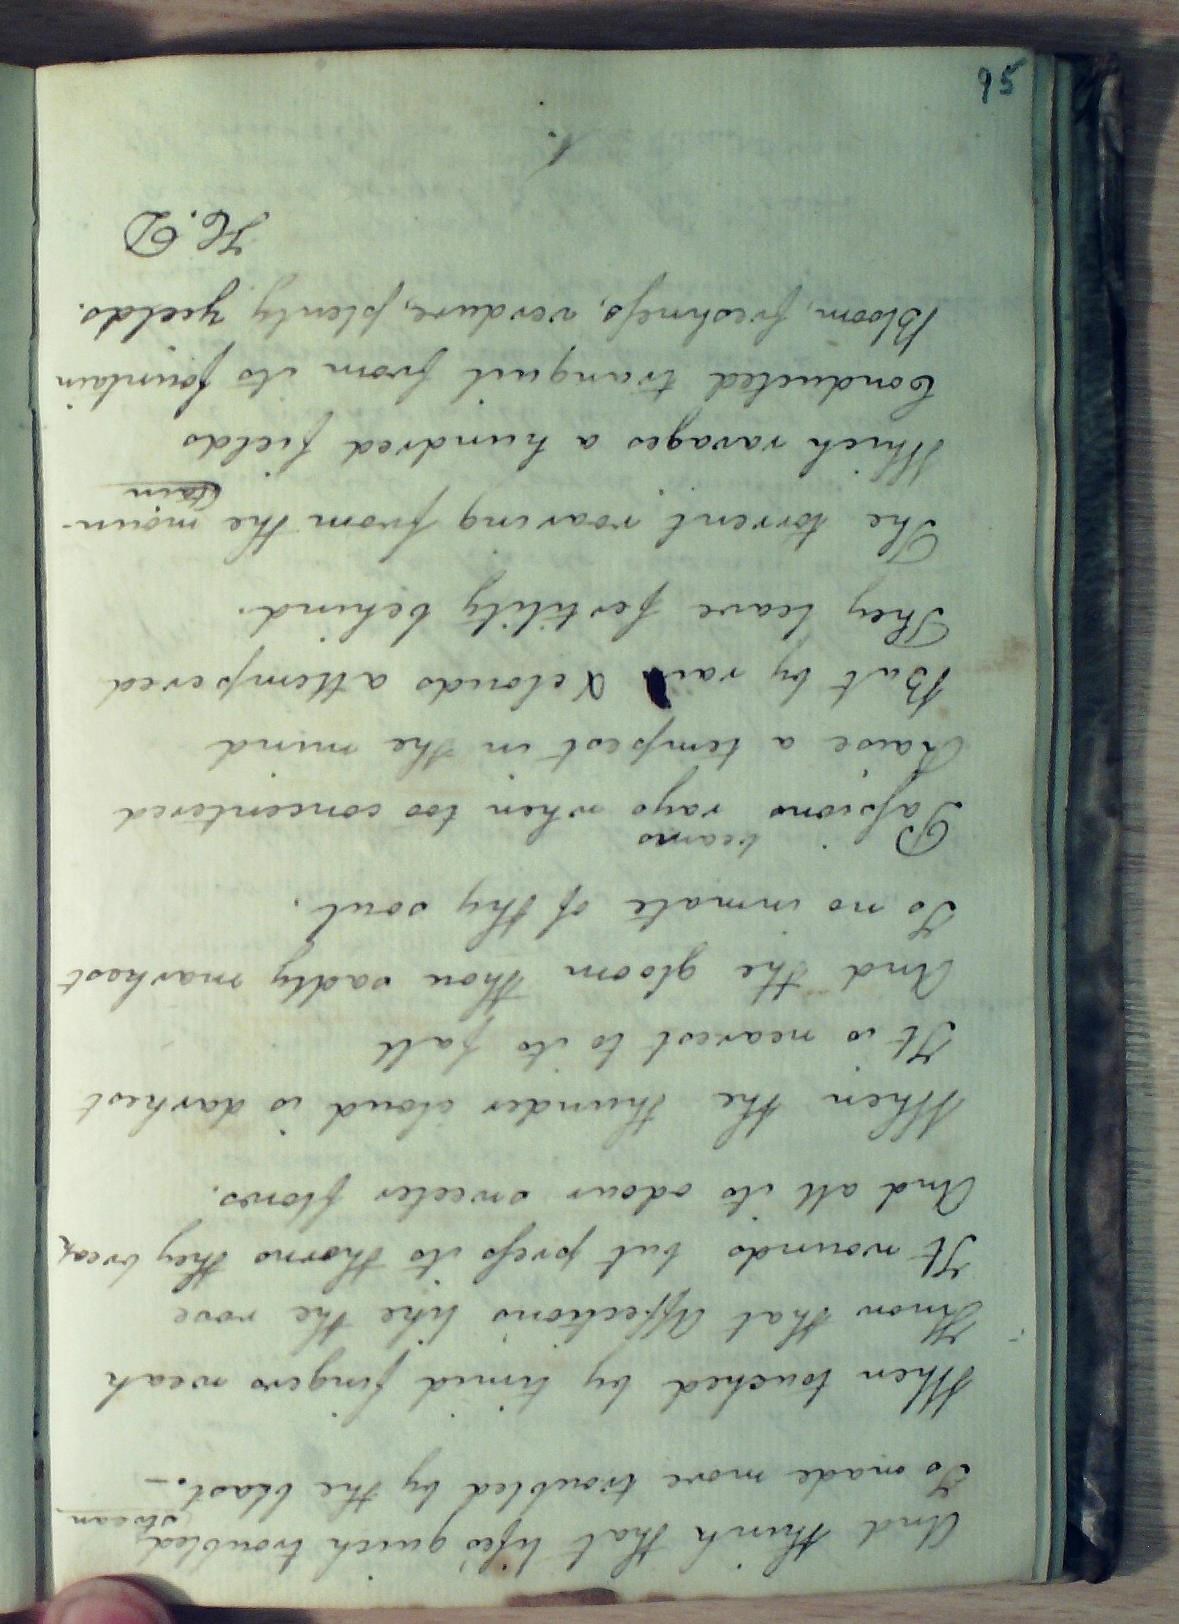 And think that life's quick troubled
stream
Is made more troubled by the blast. –
When touched by timid fingers weak
Know that affections like the rose
It wounds but press its thorns they break
And all its odour sweeter flows.
When the thunder cloud is darkest
It is nearest to its fall
And the gloom thou sadly markest
Is no inmate of thy soul.
beams
Passions rays when too concentered
Raise a tempest in the mind
But by rain & clouds attempered
They leave fertility behind.
The torrent roaring from the moun-
tain
Which ravages a hundred fields
Conducted tranquil from its fountain
Bloom, freshness, verdure, plenty yields.
H. D
95